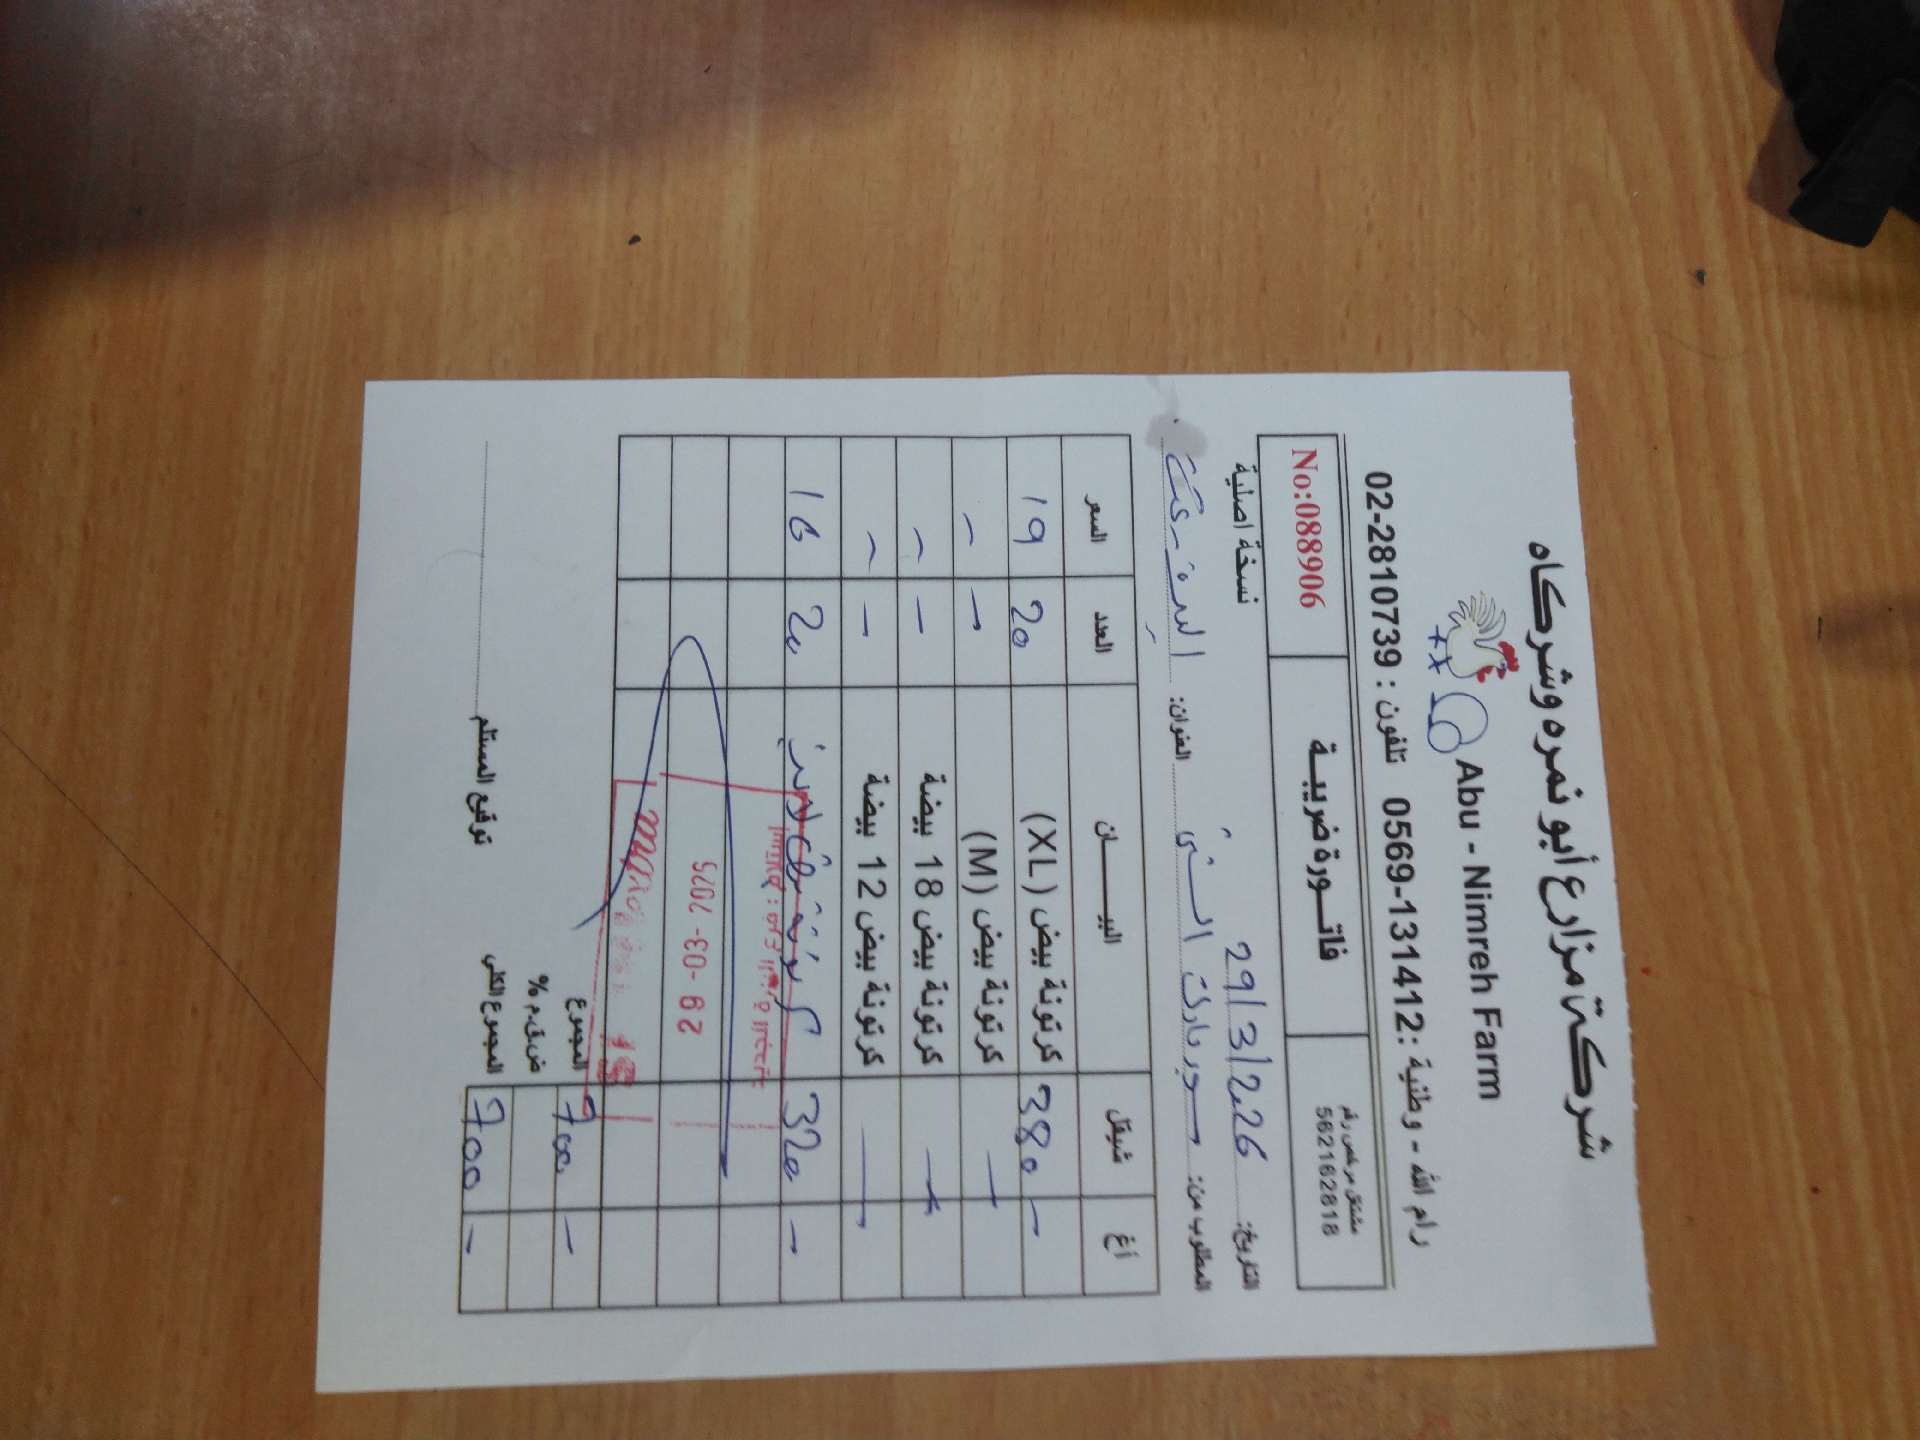 شركة مزارع أبو نمره وشركاه
Abu - Nimreh Farm
رام الله - وطنية : 0569-131412 تلفون : 02-2810739
مشتغل مرخص رقم
562162818
فاتورة ضريبة
No:088906
نسخة اصلية
التاريخ: 29/3/2026
المطلوب من: العنوان:
أغ شيقل البيـــــان العدد السعر
- 380 كرتونة بيض (XL) 20 19
- كرتونة بيض (M) - -
- كرتونة بيض 18 بيضة - -
- كرتونة بيض 12 بيضة - -
- 320 كرتونة 20 16
2 9 -03- 2026
المجموع 700 -
ض.ق.م %
المجموع الكلي 700 -
توقيع المستلم